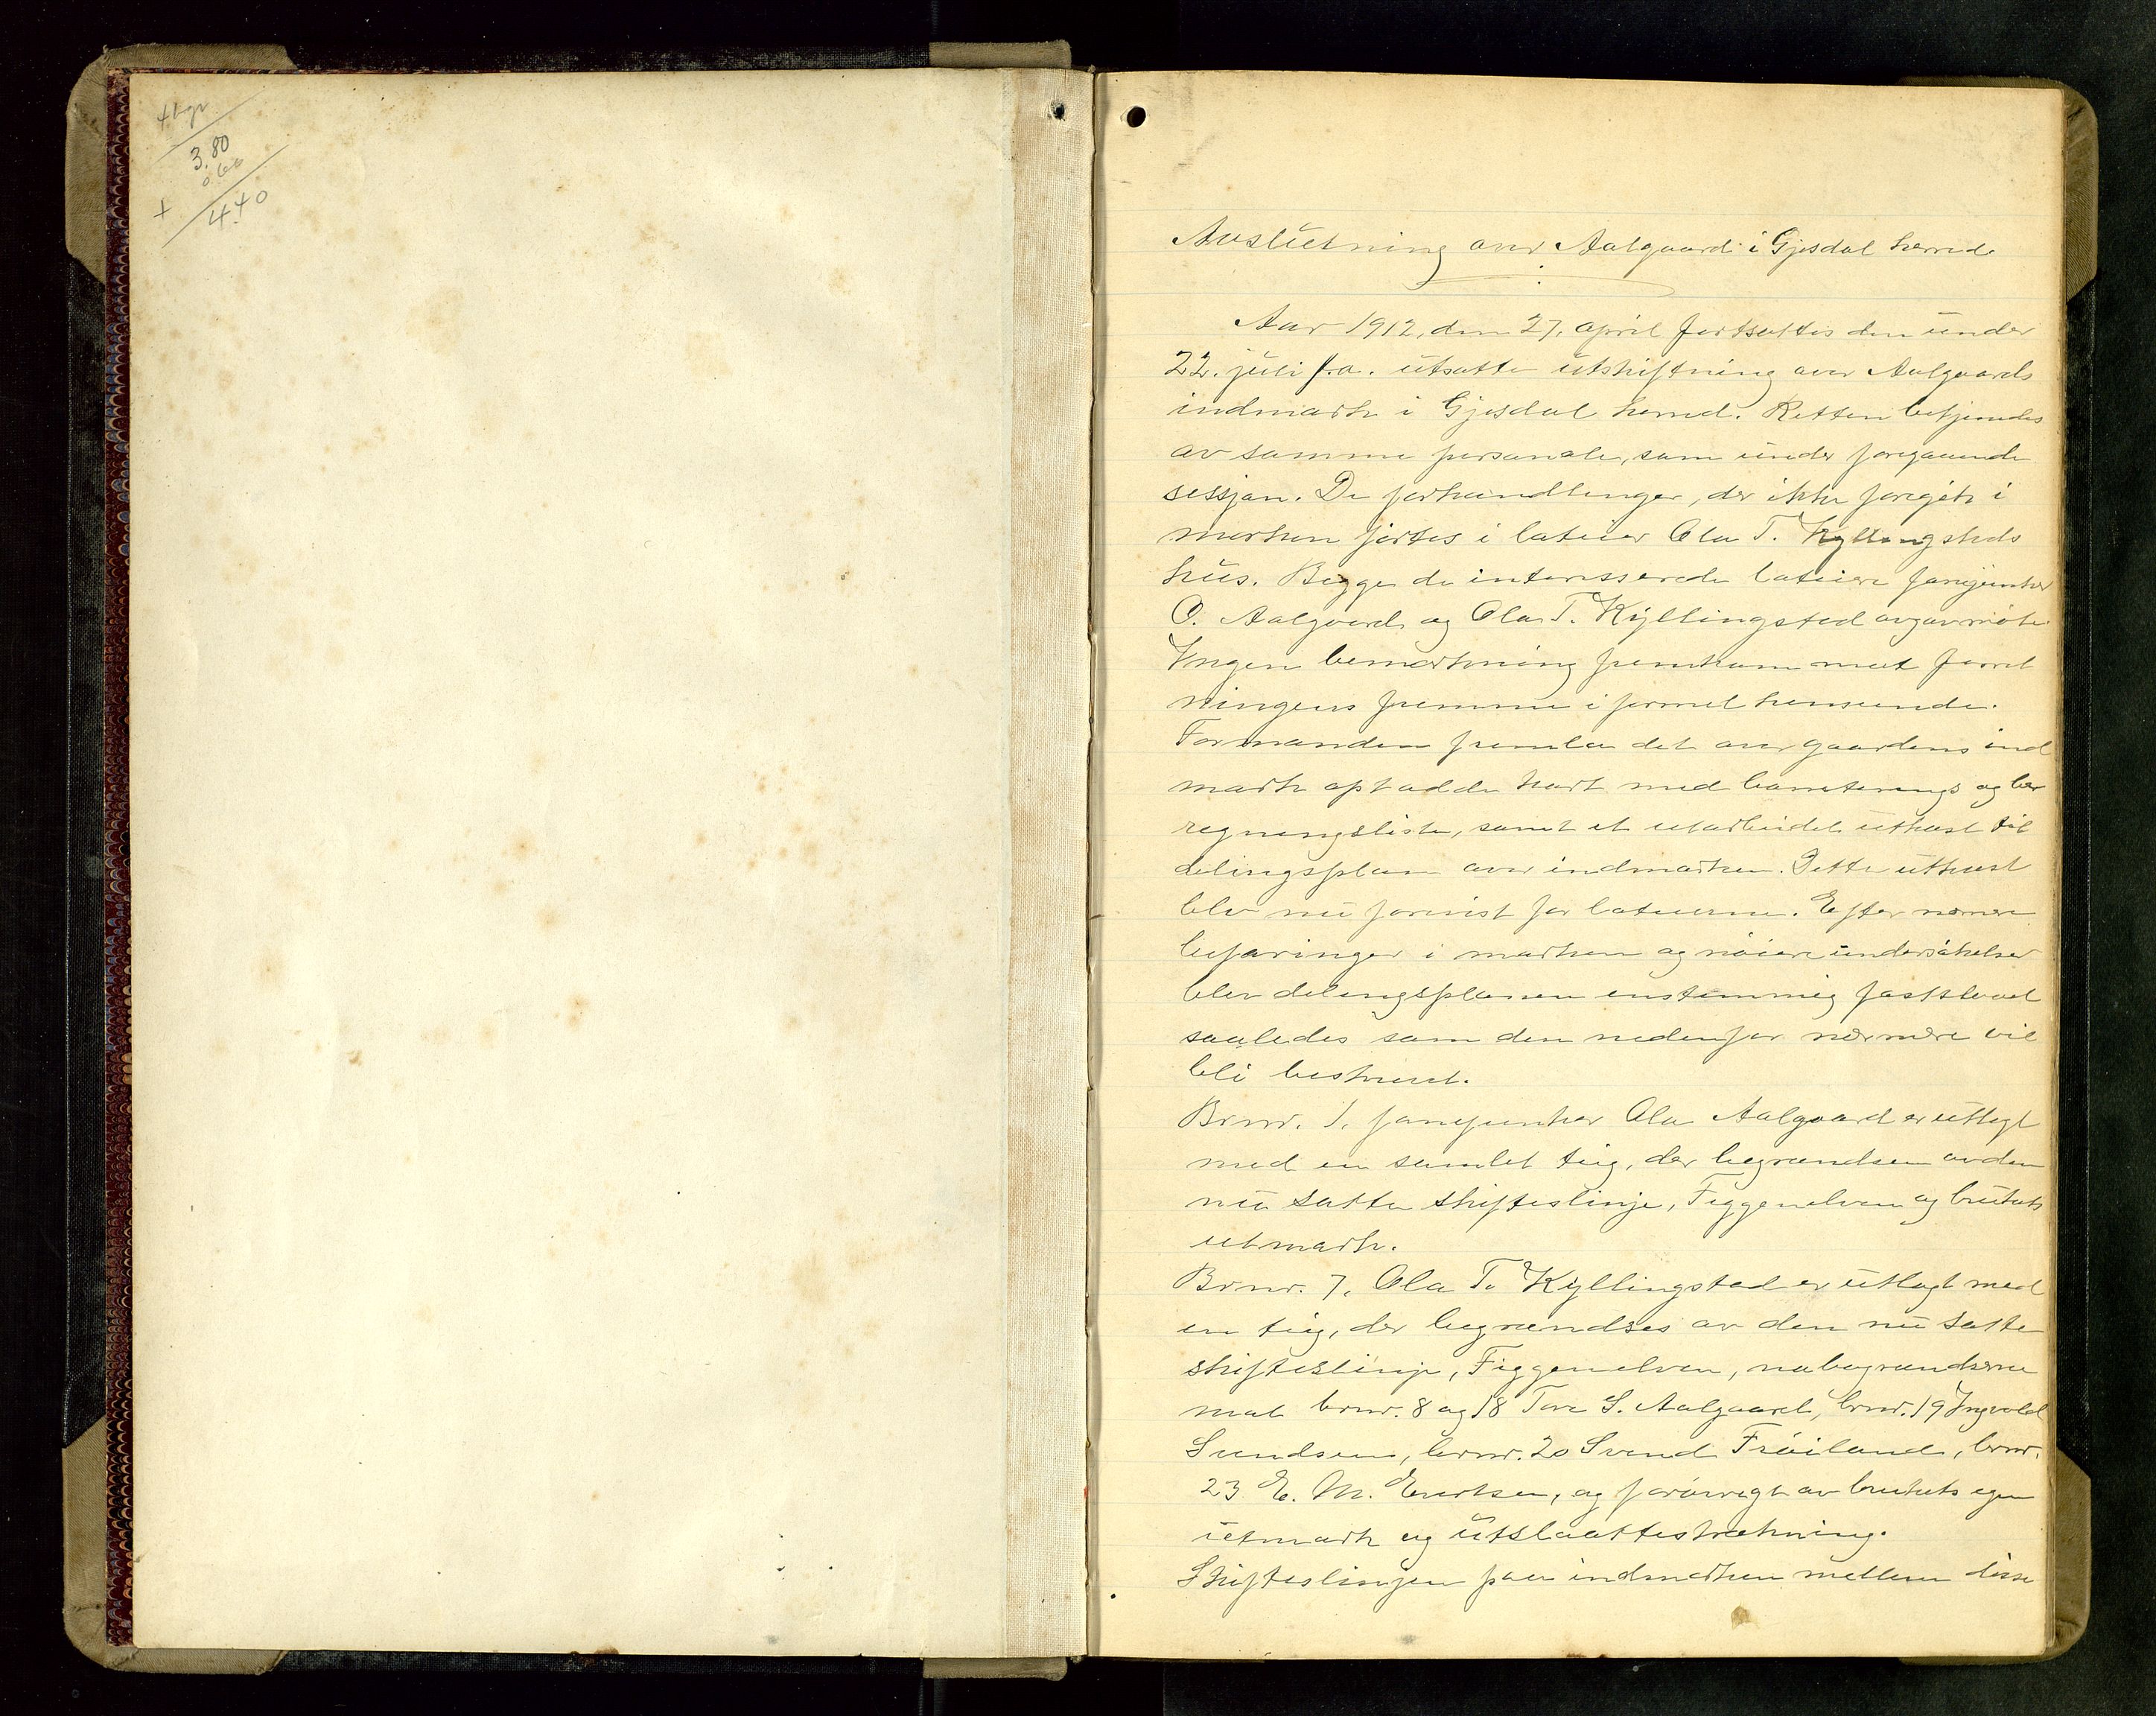 3.80
0 60
+ 4.40
Avslutning over Aalgaard i Gjesdal herred
Aar 1912, den 27. april fortsattes den under
22. juli f.a. utsatte utskiftning over Aalgaards
indmark i Gjesdal herred. Retten betjentes
av samme personale, som under foregaaende
sessjon. De forhandlinger, der ikke foregik i
marken førtes i lateier Ola T. Kyllingstads
hus. Begge de interesserede lateiere fanejunker
O. Aalgaard og Ola T. Kyllingstad avgav møte.
Ingen bemerkning fremkom mot forret
ningens fremme i formel henseende.
Formanden fremla det over gaardens ind
mark optadde kart med boniterings og be
regningsliste, samt et utarbeidet utkast til
delingsplan over indmarken. Dette utkast
blev nu forevist for lateierne. Efter nærmere
befaringer i marken og nøiere undersøkelser
blev delingsplanen enstemmig fastslaaet
saaledes som den nedenfor nærmere vil
bli beskrevet.
Brnr. 1, fanejunker Ola Aalgaard er utlagt
med en samlet teig, der begrændses av den
nu satte skifteslinje, Figgenelven og brukets
utmark.
Brnr. 7, Ola T. Kyllingstad er utlagt med
en teig, der begrændses av den nu satte
skifteslinje, Figgenelven, nabogrændserne
mot brnr. 8 og 18 Tore S. Aalgaard, brnr. 19 Ingvald
Svendsen, brnr. 20 Svend Frøiland, brnr.
23 E. M. Evertsen, og forøvrigt av brukets egen
utmark og utslaattestrækning.
Skifteslinjen paa indmarken mellem disse